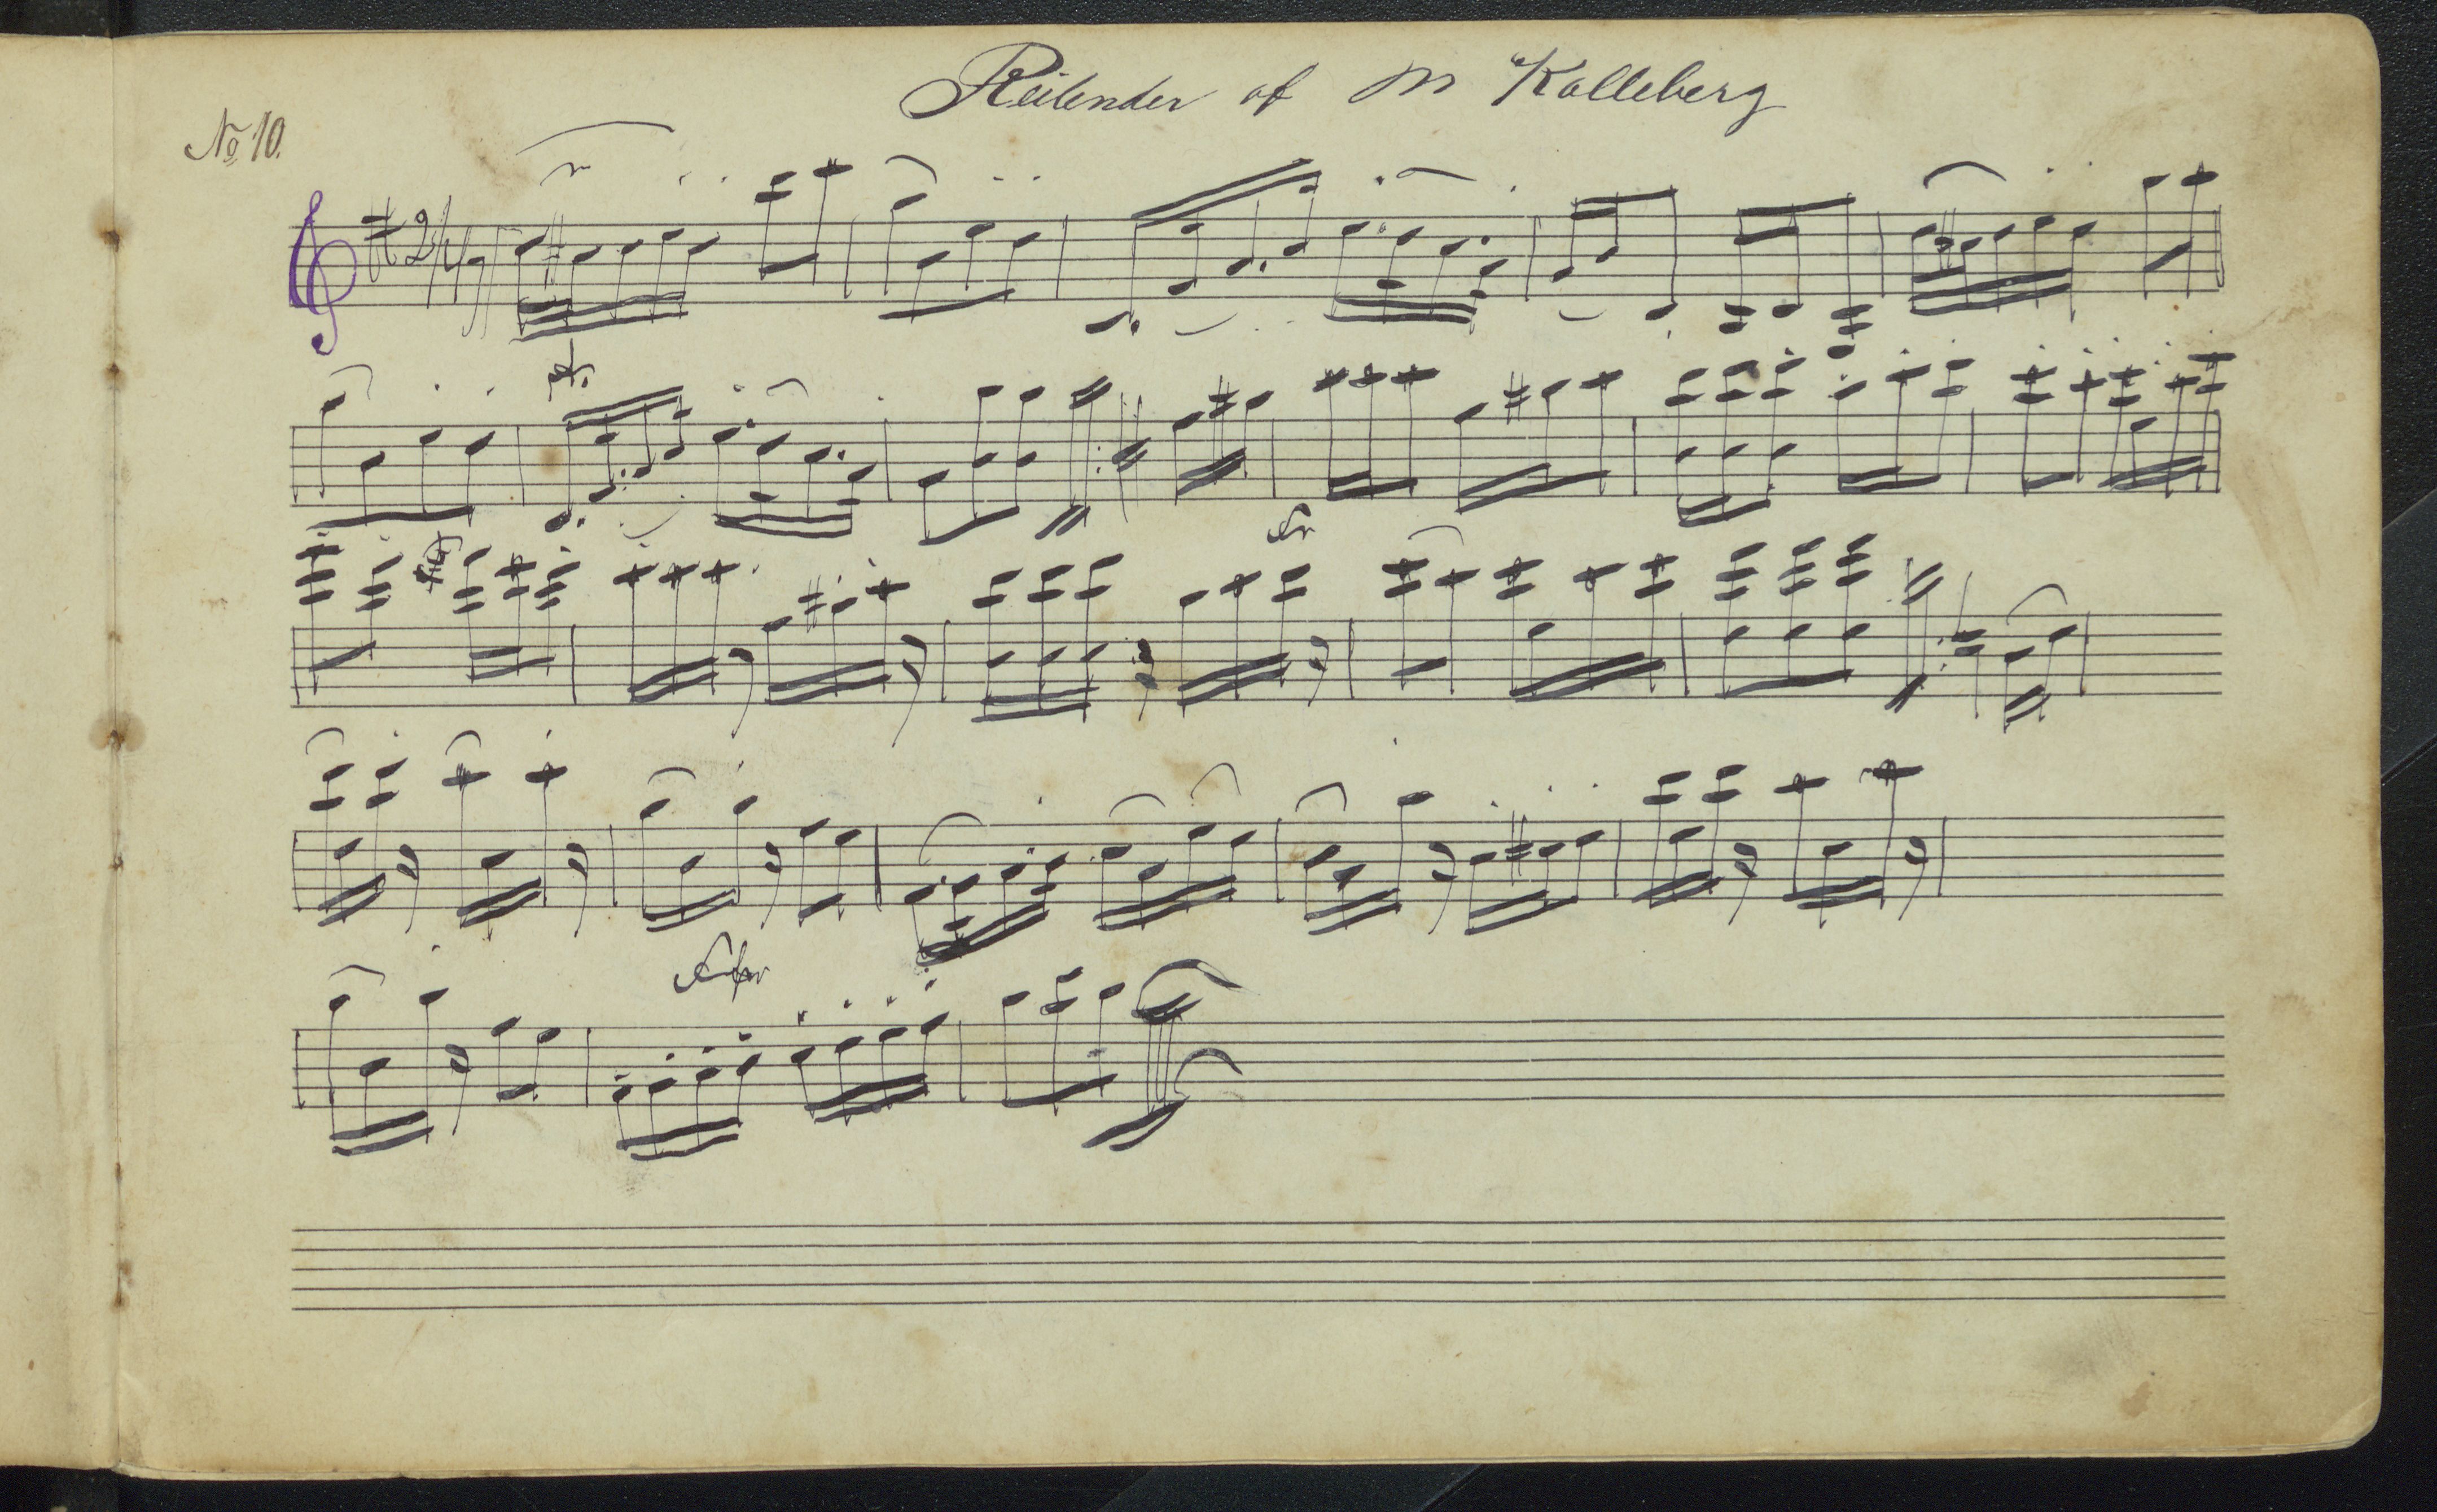 Reilender af M Kalleberg
No 10.
2/4